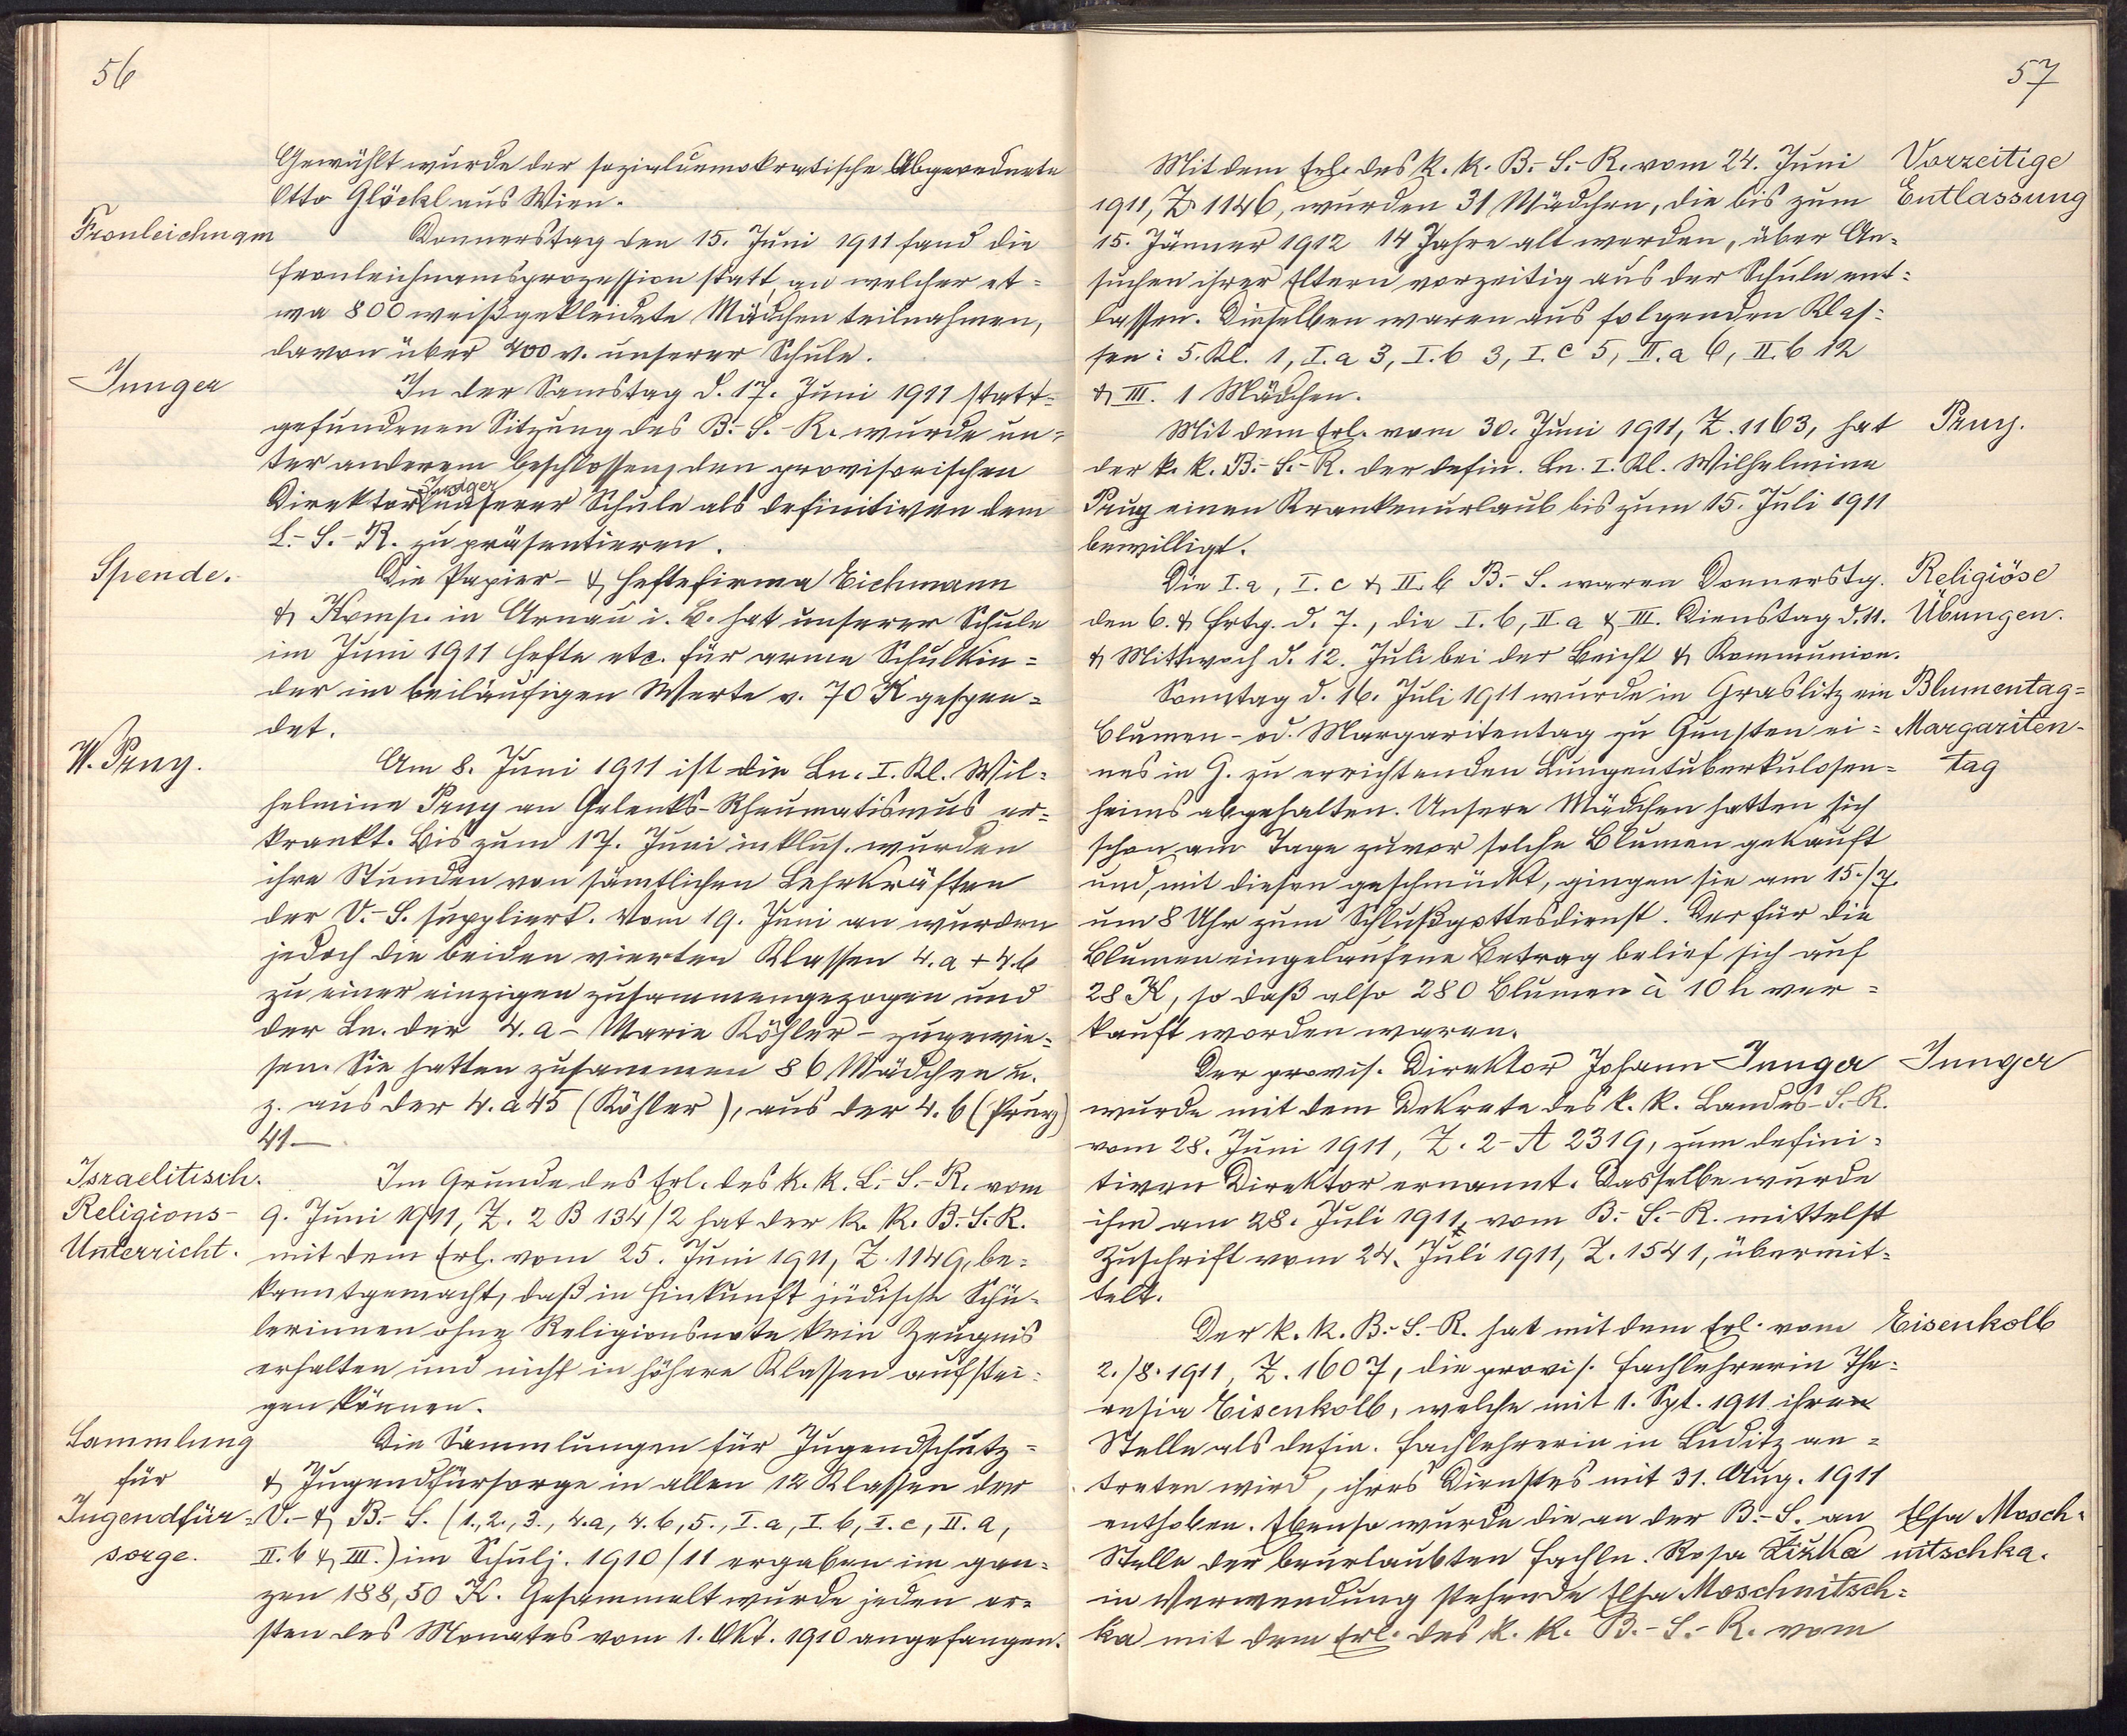 56
Gewählt wurde der sozialdemokratische Abgeordnete
Otto Glöckl aus Wien.
Fronleichnam
Donnerstag den 15. Juni 1911 fand die
Fronleichnamsprozession statt, an welcher et=
wa 800 weißgekleidete Mädchen teilnahmen,
davon über 400 v. unserer Schule.
Junger
In der Samstag d. 17. Juni 1911 statt=
gefundenen Sitzung des B.-S.-R. wurde un=
ter anderem beschlossen, den provisorischen
Direktor Junger unserer Schule als definitiven dem
L.-S.-R. zu präsentieren.
Spende.
Die Papier- & Heftefirma Eichmann
& Komp. in Arnau i. B. hat unserer Schule
im Juni 1911 Hefte etc. für arme Schulkin=
der im beiläufigen Werte v. 70 K gespen=
det.
W. Przy.
Am 8. Juni 1911 ist die Ln. I. Kl. Wil=
helmine Przy an Gelenks-Rheumatismus er=
krankt. Bis zum 17. Juni inklus. wurden
ihre Stunden von sämtlichen Lehrkräften
der V.-S. suppliert. Vom 19. Juni an wurden
jedoch die beiden vierten Klassen 4.a + 4.b
zu einer einzigen zusammengezogen und
der Ln. der 4.a - Marie Köhler - zugewie=
sen. Sie hatten zusammen 86 Mädchen u.
z. aus der 4.a 45 (Köhler), aus der 4.b (Przy)
41 —
Israelitisch.
Religions-
Unterricht.
Im Grunde des Erl. des k. k. L.-S.-R. vom
9. Juni 1911, Z. 2 B 134/2 hat der k. k. B.-S.-R.
mit dem Erl. vom 25. Juni 1911, Z. 1149, be=
kanntgemacht, daß in Hinkunft jüdische Schü=
lerinnen ohne Religionsnote kein Zeugnis
erhalten und nicht in höhere Klassen aufstei=
gen können.
Sammlung
für
Jugendfür=
sorge.
Die Sammlungen für Jugendschutz=
& Jugendfürsorge in allen 12 Klassen der
V.- & B.-S. (1., 2., 3., 4.a, 4.b, 5., I.a, I.b, I.c, II.a,
II.b & III.) im Schulj. 1910/11 ergaben im gan=
zen 188,50 K. Gesammelt wurde jeden er=
sten des Monates vom 1. Okt. 1910 angefangen.
57
Mit dem Erl. des k. k. B.-S.-R. vom 24. Juni
1911, Z. 1146, wurden 31 Mädchen, die bis zum
15. Jänner 1912 14 Jahre alt werden, über An=
suchen ihrer Eltern vorzeitig aus der Schule ent=
lassen. Dieselben waren aus folgenden Klas=
sen: 5. Kl. 1, I.a 3, I.b 3, I.c 5, II.a 6, II.b 12
& III. 1 Mädchen.
Vorzeitige
Entlassung
Mit dem Erl. vom 30. Juni 1911, Z. 1163, hat
der k. k. B.-S.-R. der defin. Ln. I. Kl. Wilhelmine
Przy einen Krankenurlaub bis zum 15. Juli 1911
bewilligt.
Przy.
Die I.a, I.c & II.b B.-S. waren Donnerstg.
den 6. & Frtg. d. 7., die I.b, II a & III. Dienstag d. 11.
& Mittwoch d. 12. Juli bei der Beicht & Kommunion.
Religiöse
Übungen.
Sonntag d. 16. Juli 1911 wurde in Graslitz ein
Blumen- od. Margaritentag zu Gunsten ei=
nes in G. zu errichtenden Lungentuberkulosen=
heims abgehalten. Unsere Mädchen hatten sich
schon am Tage zuvor solche Blumen gekauft
und, mit diesen geschmückt, gingen sie am 15./7.
um 8 Uhr zum Schlußgottesdienst. Der für die
Blumen eingelaufene Betrag belief sich auf
28 K, so daß also 280 Blumen à 10 h ver=
kauft worden waren.
Blumentag=
Margariten-
tag
Der provis. Direktor Johann Junger
wurde mit dem Dekrete des k. k. Landes-S.-R.
vom 28. Juni 1911, Z. 2-A 2319, zum defini=
tiven Direktor ernannt. Dasselbe wurde
ihm am 28. Juli 1911, vom B.-S.-R. mittelst
Zuschrift vom 24. Juli 1911, Z. 1541, übermit=
telt.
Junger
Der k. k. B.-S.-R. hat mit dem Erl. vom
2./8. 1911, Z. 1607, die provis. Fachlehrerin The=
resia Eisenkolb, welche mit 1. Spt. 1911 ihre
Stelle als defin. Fachlehrerin in Luditz an=
treten wird, ihres Dienstes mit 31. Aug. 1911
enthoben. Ebenso wurde die an der B.-S. an
Stelle der beurlaubten Fachln. Rosa Zižka
in Verwendung stehende Elsa Moschnitsch=
ka mit dem Erl. des k. k. B.-S.-R. vom
Eisenkolb
Elsa Mosch-
nitschka.